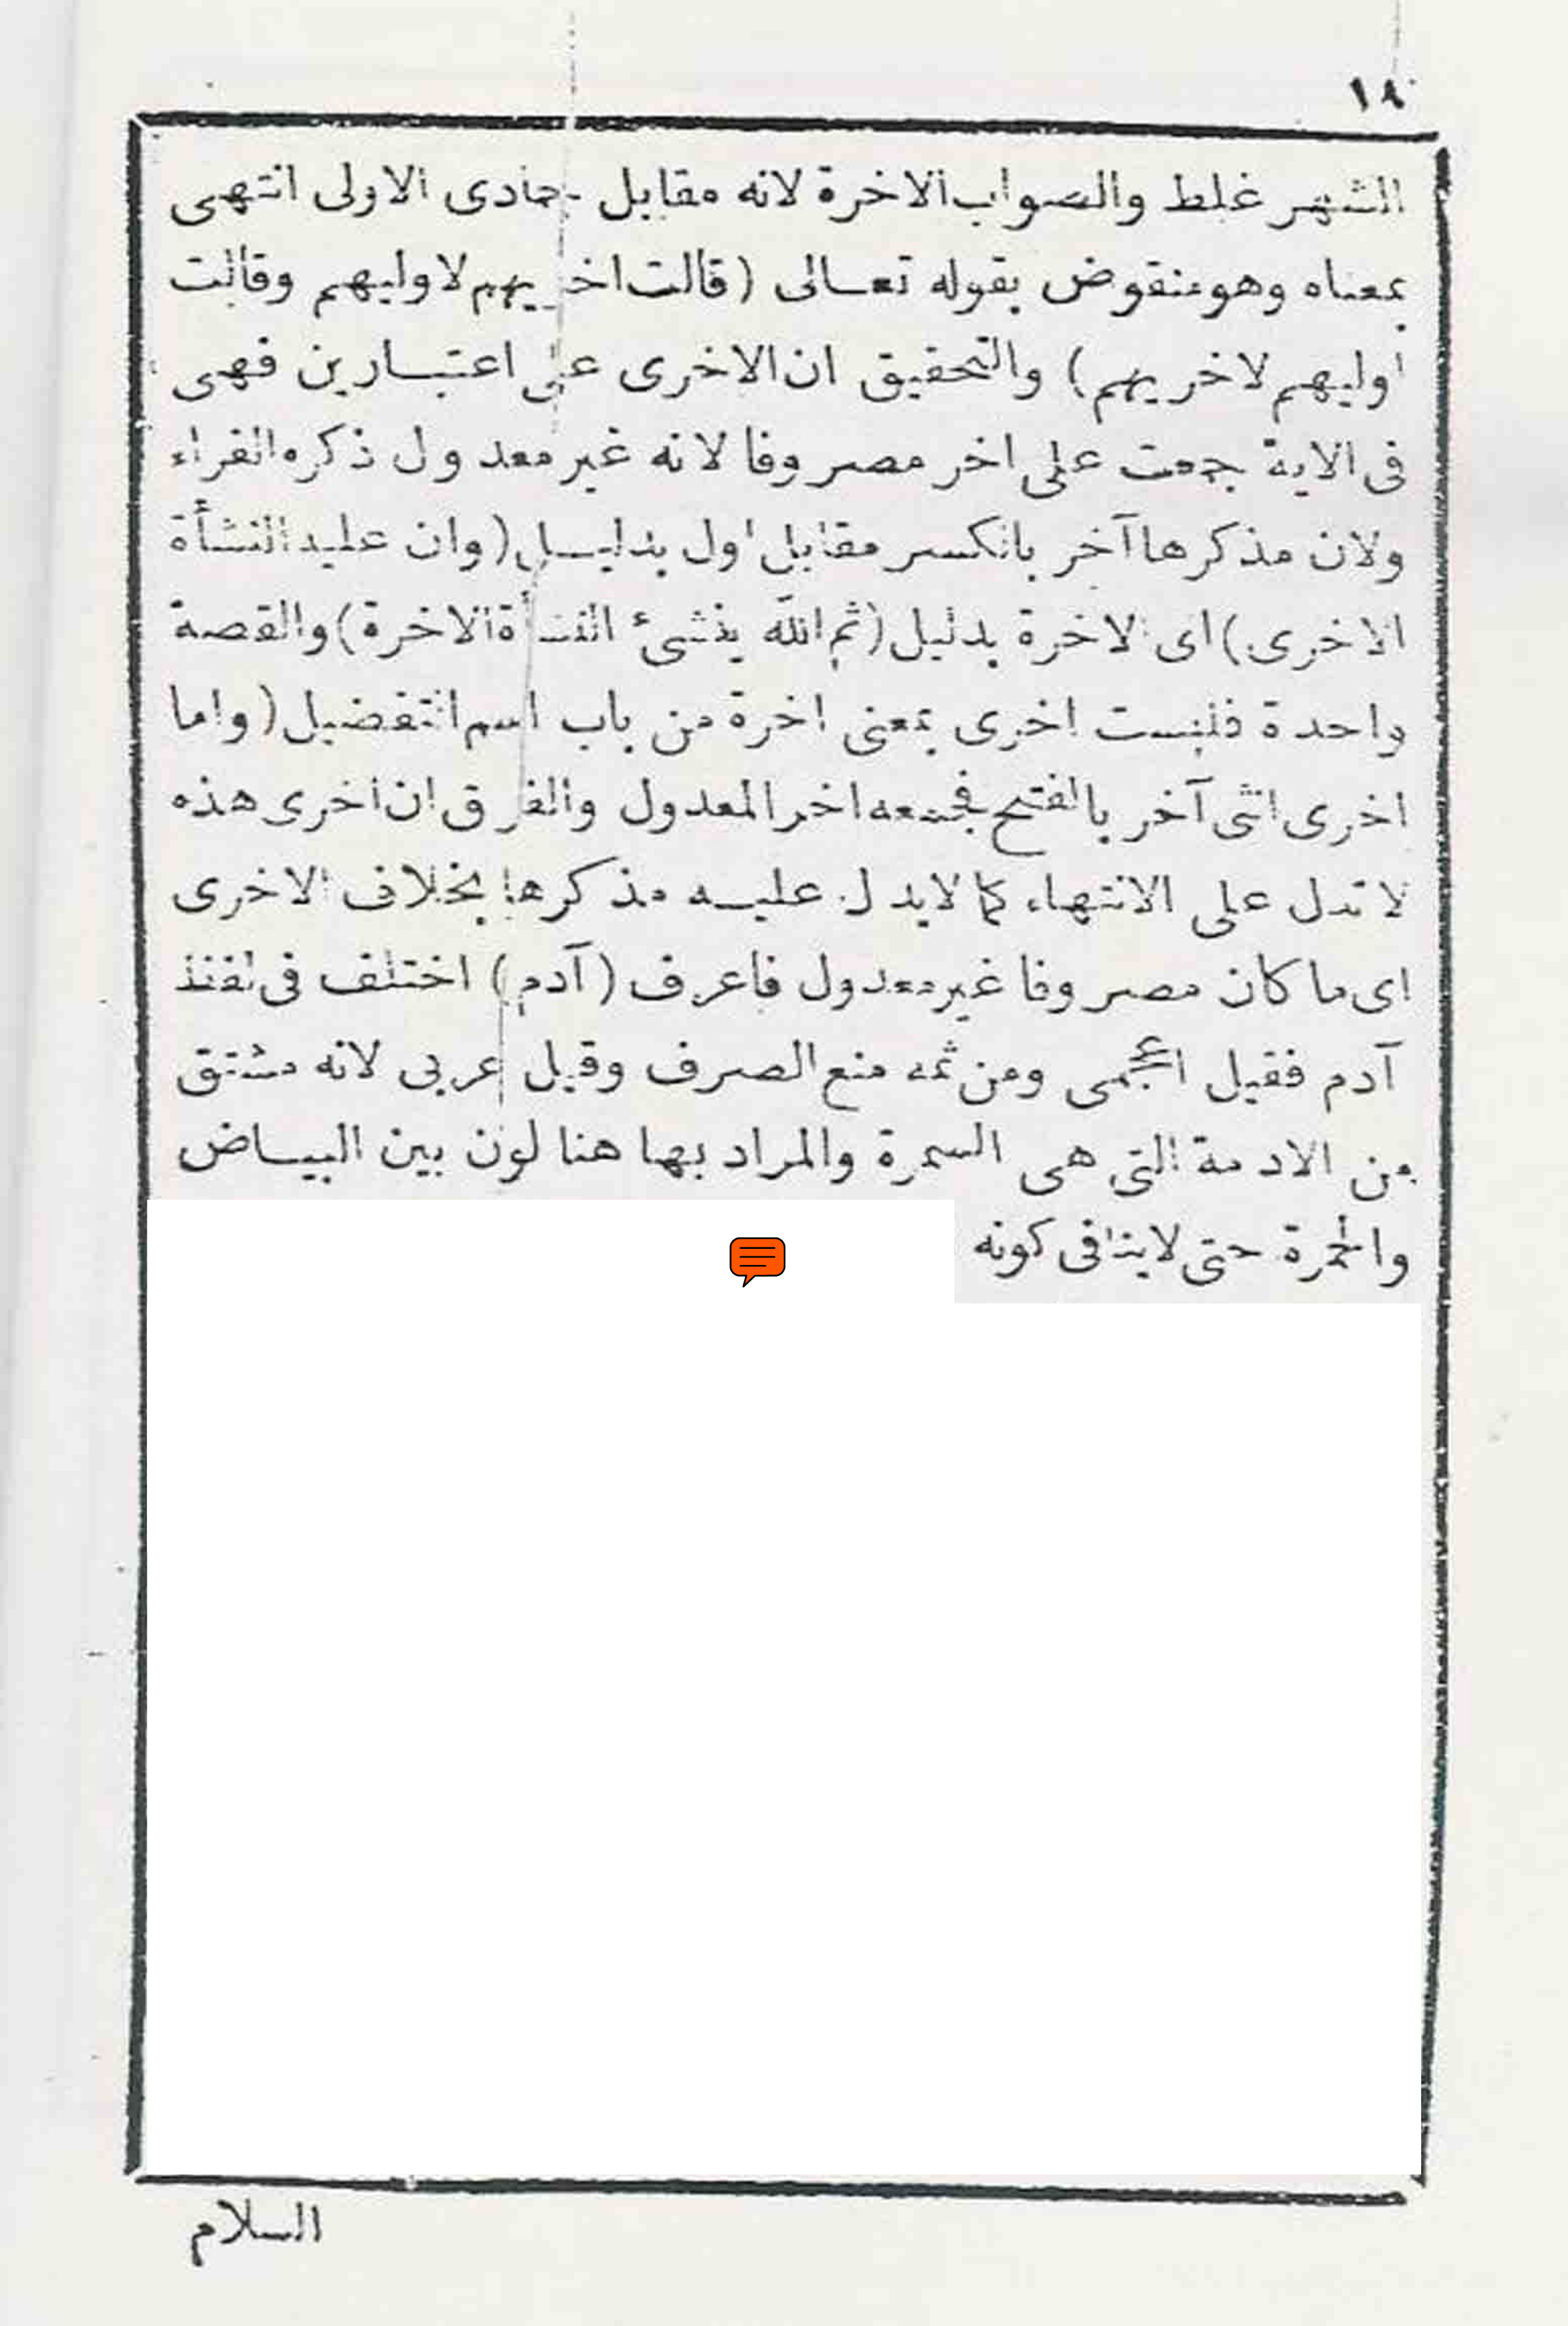 ١٨
الشهر غلط والصواب الاخرة لانه مقابل جمادى الاولى انتهى
بمعناه وهو منقوض بقوله تعالى (قالت اخريهم لاوليهم وقالت
اوليهم لاخريهم) والتحقيق ان الاخرى على اعتبارين فهى
فى الاية جمعت على اخر مصروفا لانه غير معدول ذكره الفراء
ولان مذكرها آخر بالكسر مقابل اول بدليل (وان عليه النشأة
الاخرى) اى الاخرة بدليل (ثم الله ينشئ النشأة الاخرة) والقصة
واحدة فليست اخرى بمعنى اخرة من باب اسم التفضيل (واما
اخرى انثى آخر بالفتح فجمعه اخر المعدول والفرق ان اخرى هذه
لا تدل على الانتهاء كما لا يدل عليه مذكرها بخلاف الاخرى
اى ما كان مصروفا غير معدول فاعرف (آدم) اختلف فى لفظ
آدم فقيل اعجمى ومن ثمه منع الصرف وقيل عربى لانه مشتق
من الادمة التى هى السمرة والمراد بها هنا لون بين البياض
والحمرة حتى لا ينافى كونه
السلام